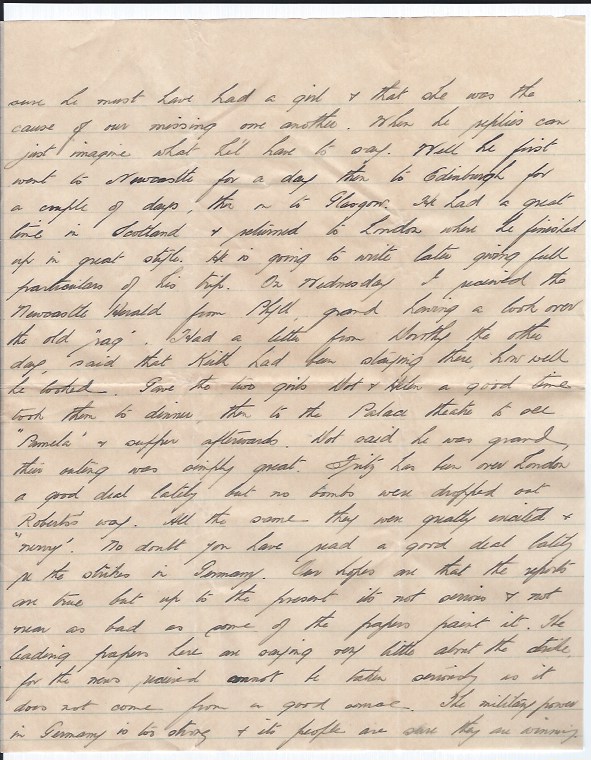 sure he must have had a girl & that she was the
cause of our missing one another. When he replies can
just imagine what he'll have to say. Well he first
went to Newcastle for a day then to Edinburgh for
a couple of days, then on to Glasgow. He had a great
time in Scotland & returned to London where he finished
up in great style. He is going to write later giving full
particulars of his trip. On Wednesday I received the
Newcastle Herald from Phyll, grand having a look over
the old "rag". Had a letter from Dorothy the other
day, said that Keith had been staying there, how well
he looked. Gave the two girls Dot & Helen a good time
took them to dinner, then to the Palace theatre to see
"Pamela" & supper afterwards. Dot said he was grand,
their outing was simply great. Fritz has been over London
a good deal lately but no bombs were dropped out
Roberts's way. All the same they were greatly excited &
"nervy". No doubt you have read a good deal lately
re the strikes in Germany. Our hopes are that the reports
are true but up to the present its not serious & not
near as bad as some of the papers paint it. The
leading papers here are saying very little about the strike,
for the news received cannot be taken seriously as it
does not come from a good source. The military power
in Germany is too strong & its people are sure they are winning